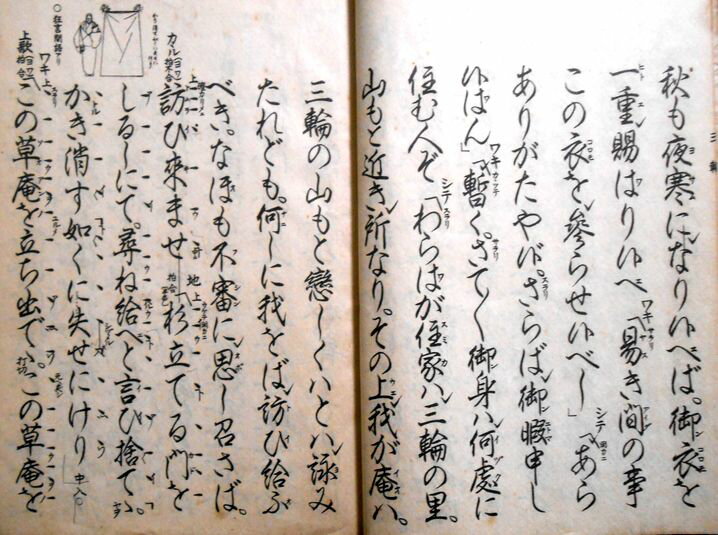 秋も夜寒になり候へば。御衣を
一重賜はり候へ ワキ「易き間の事
この衣を參らせ候べし」 シテ「あら
ありがたや候。さらば御暇申し
候はん」 ワキ「暫く。さて〳〵御身ハ何處に
住む人ぞ シテ「わらはが住家ハ三輪の里。
山もと近き所なり。その上我が庵ハ。
三輪の山もと戀しくハとハ詠み
たれども。何しに我をば訪ひ給ふ
べき。なほも不審に思し召さば。
訪ひ來ませ 地上 杉立てる門を
しるしにて。尋ね給へと言ひ捨てゝ
かき消す如くに失せにけり 中入
ワキ上 この草庵を立ち出でゝ。この草庵を
○狂言間語アリ
三輪